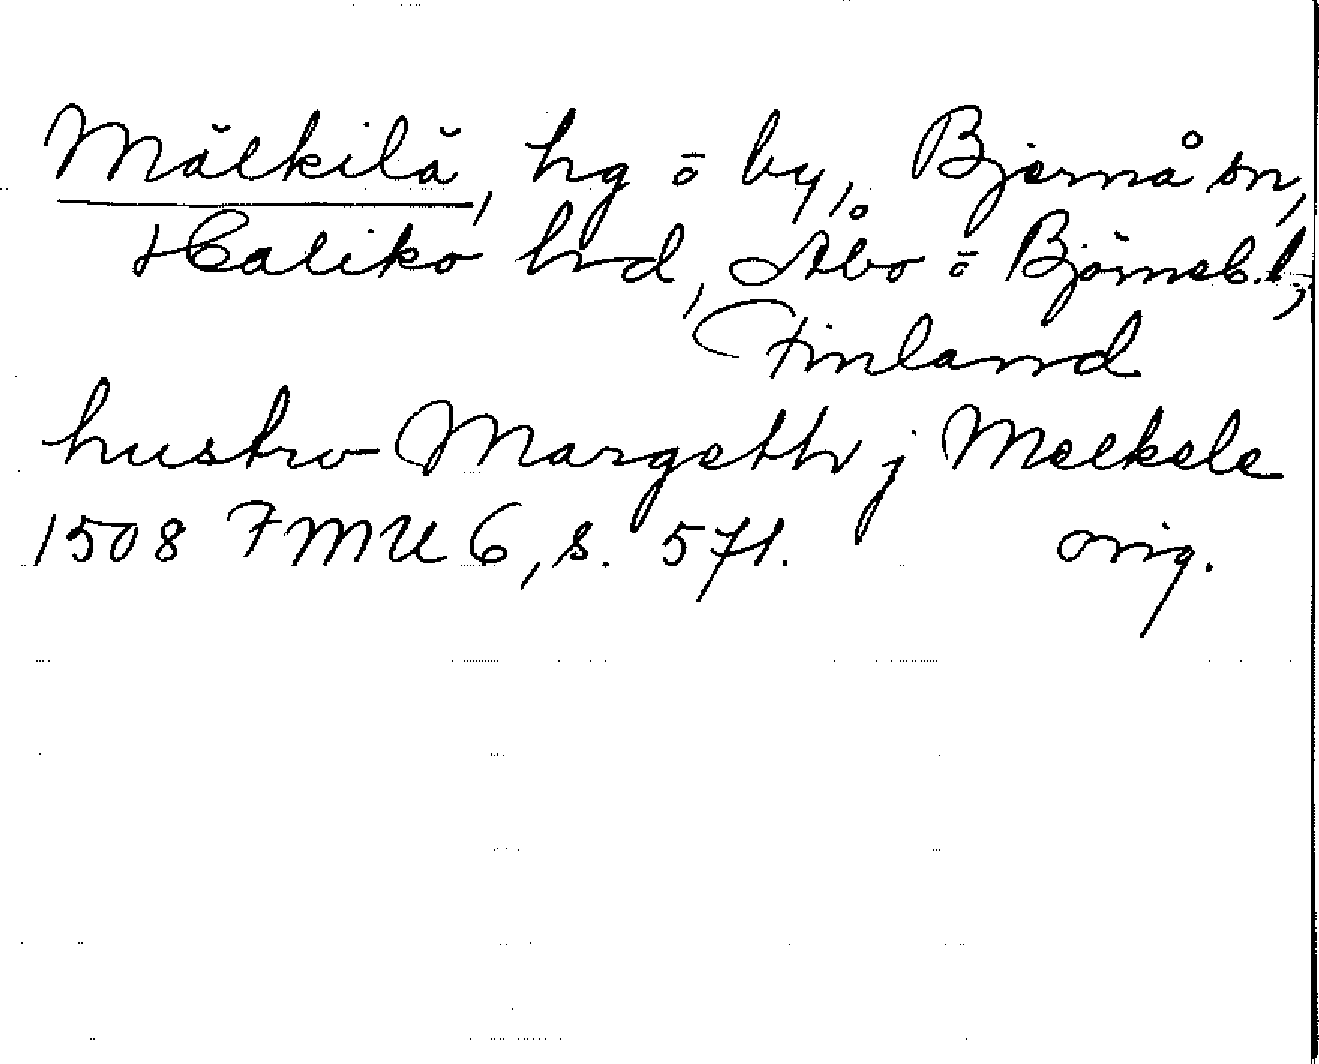 Mälkilä, hg ō by, Bjernå sn,
Haliko hrd, Åbo ō Björneb. l,
Finland
hustrv Margethr j Melkele
1508 FMU 6, s. 571. orig.